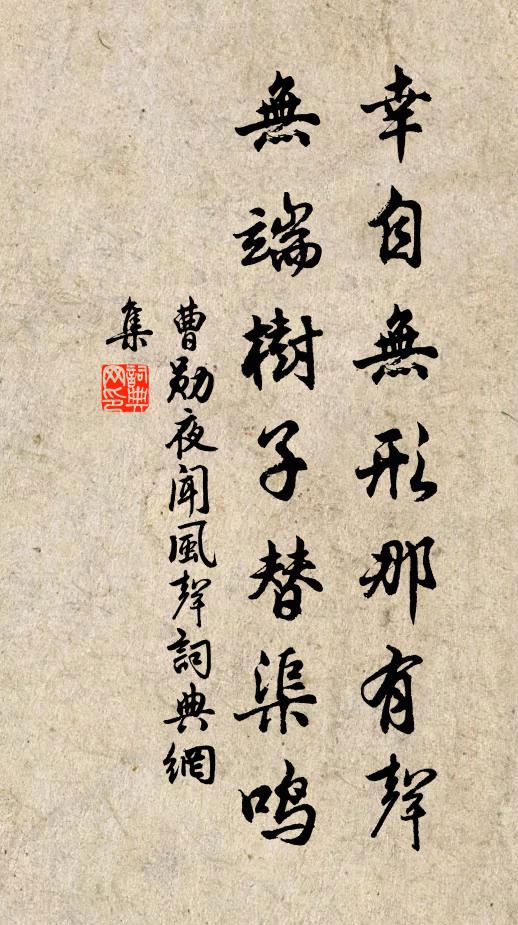 幸自無形那有聲
無端樹子替渠鳴
曹勛夜聞風聲詞典網
集
詞典網印